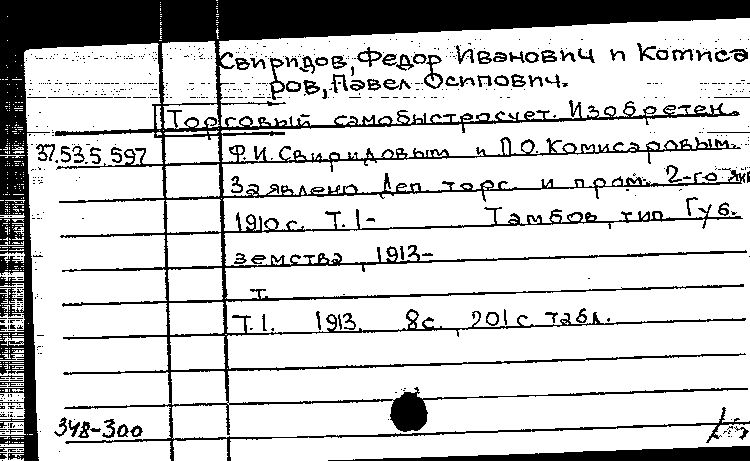 Свиридов, Федор Иванович и Комиса
ров, Павел Осипович.
Торговый самобыстросчет. Изобретен.
37.53.5.597 Ф.И. Свиридовым и П.О. Комисаровым.
Заявлено Деп. торг. и пром. 2-го янв
1910 г. Т. 1- Тамбов, тип. Губ.
земства, 1913-
т.
Т.1. 1913. 8с., 201 с. табл.
348-300